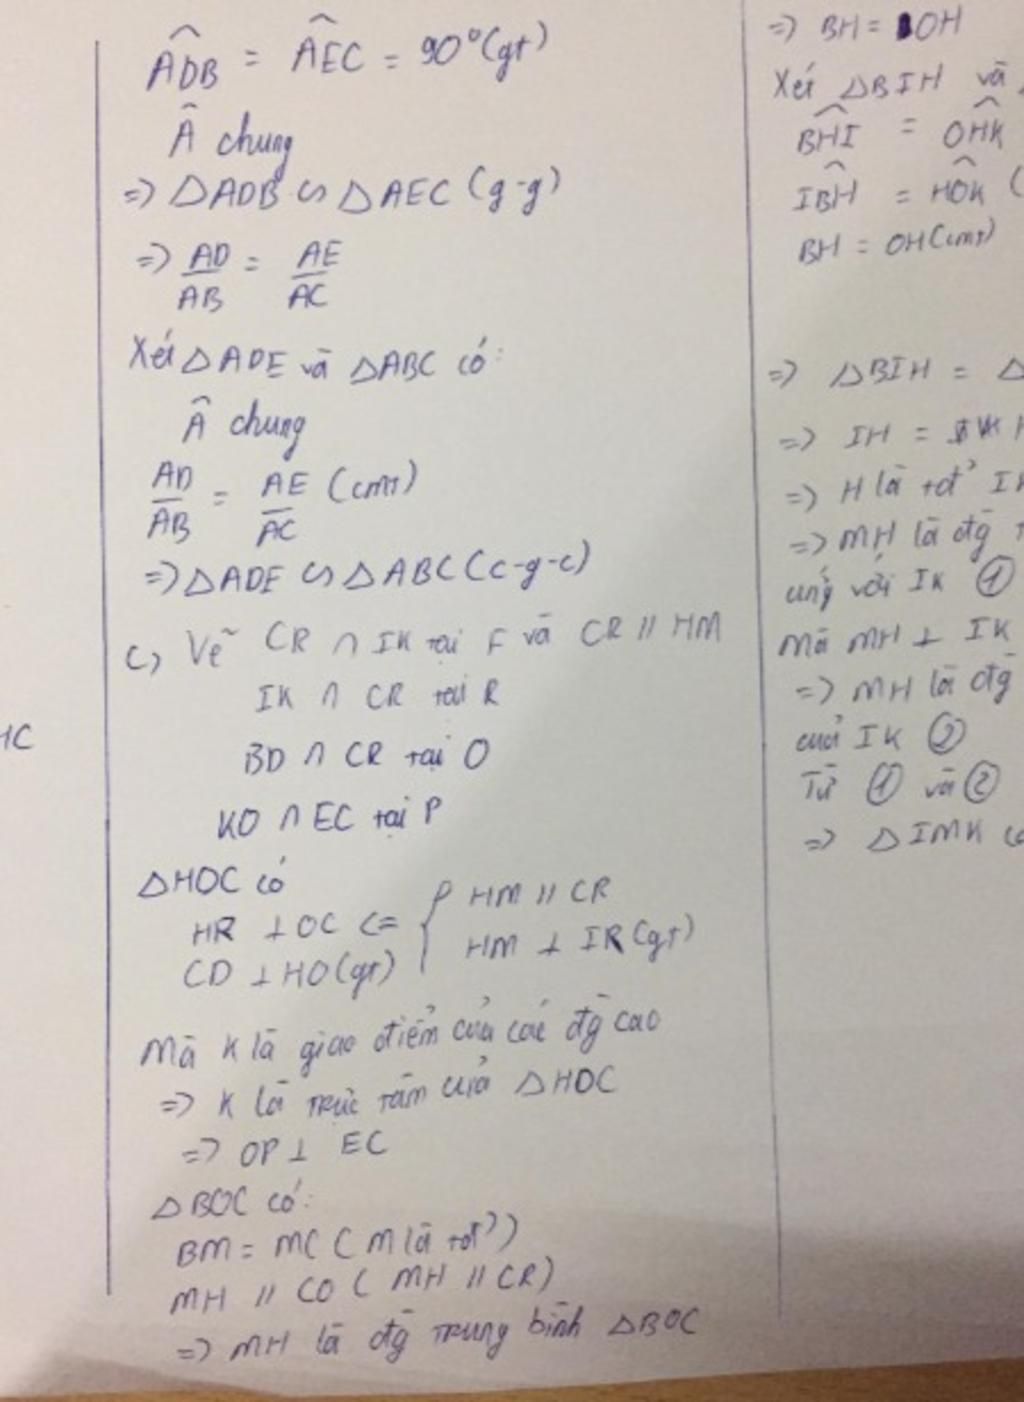 HC
ADB = AEC = 90°(gt)
Â chung
=> △ADB ∽ △AEC (g-g)
=> AD/AB = AE/AC
Xét △ADE và △ABC có:
Â chung
AD/AB = AE/AC (cmt)
=> △ADE ∽ △ABC (c-g-c)
c, Vẽ CR ∩ IK tại F và CR // HM
IK ∩ CR tại R
BD ∩ CR tại O
KO ∩ EC tại P
△HOC có
HR ⊥ OC <= { HM // CR
CD ⊥ HO (gt) HM ⊥ IR (gt)
Mà K là giao điểm của các đg cao
=> K là trực tâm của △HOC
=> OP ⊥ EC
△BOC có:
BM = MC ( M là tđ')
MH // CO ( MH // CR)
=> MH là đg trung bình △BOC
=> BH = OH
Xét △BIH và
BHI = OHK
IBH = HOK (
BH = OH (cmt)
=> △BIH = △
=> IH =
=> H là tđ' IK
=> MH là đg
ứng với IK ①
Mà MH ⊥ IK
=> MH là đg
của IK ②
Từ ① và ②
=> △IMK